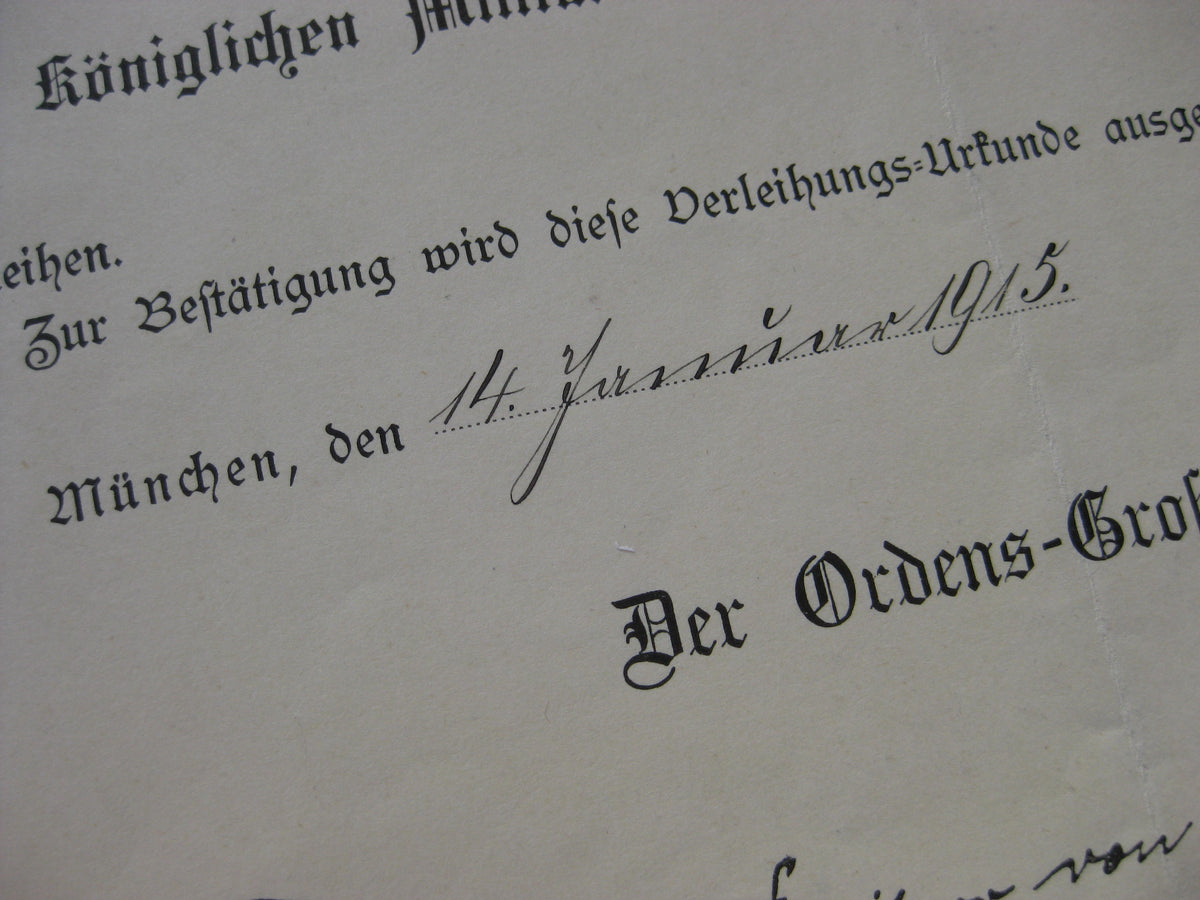 Königlichen
eihen.
Zur Bestätigung wird diese Verleihungs-Urkunde ausge
München, den 14. Januar 1915.
Der Ordens-Groß
von